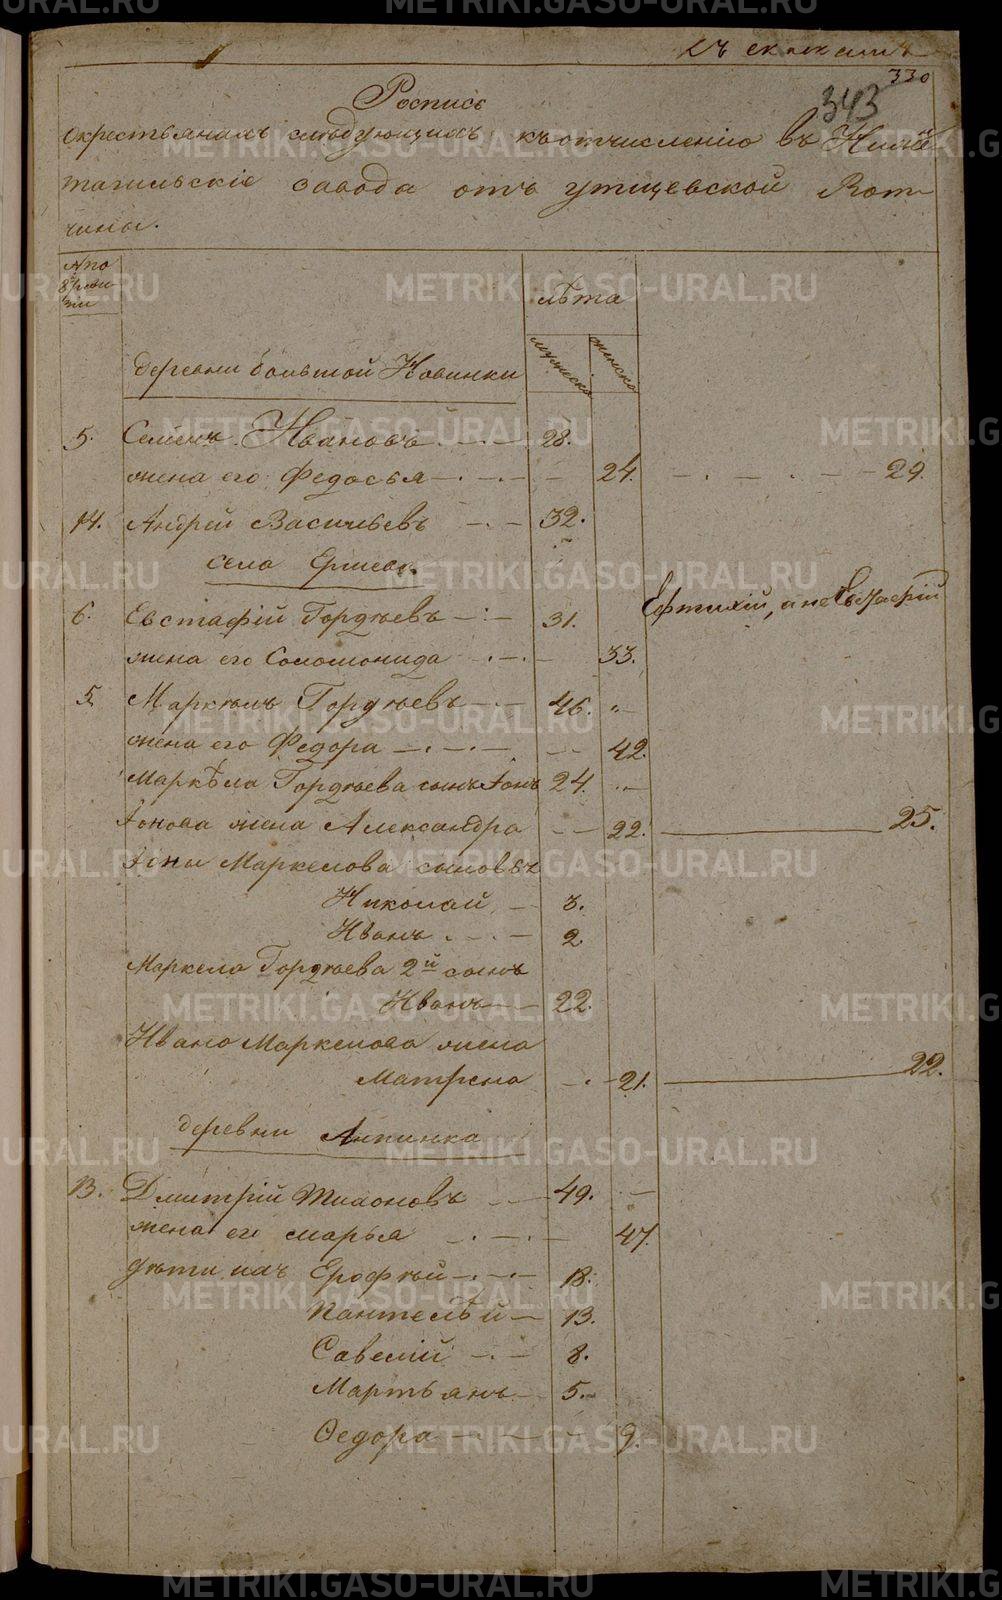 къ сказкамъ
330
343
Роспись
окрестьянахъ следующихъ къотчислению въ Нижне
тагильскіе завода отъ утицевской Вот-
чины.
№ по
8 реви-
зіи
лѣта
мужеска
женска
деревни большой Новинки
5. Семенъ Ивановъ 28.
жена его Федосья 24. 29.
14. Андрей Васильевъ 32.
село
6. Евстафій Гордѣевъ 31. Ефтихій, а не Евстафій
жена его Соломонида 33.
5. Маркелъ Гордѣевъ 46.
жена его Федора 42.
Маркѣла Гордѣева сынъ Іонъ 24.
Іонова жена Александра 22. 25.
Іоны Маркелова сыновья
Николай 3.
Иванъ 2
Маркела Гордѣева 2й сынъ
Иванъ 22.
Ивана Маркелова жена
Матрена 21. 22.
деревни Анпинка
13. Дмитрій Тихоновъ 49.
жена его марья 47.
дѣти ихъ Ерофѣй 18.
Пантелѣй 13.
Савелій 8.
Мартьянъ 5.
Ѳедора 9.
METRIKI.GASO-URAL.RU